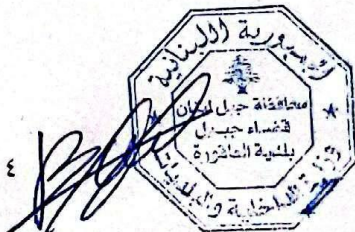 الجمهورية اللبنانية
محافظة جبل لبنان
قضاء جبيل
بلدية العاقورة
وزارة الداخلية والبلديات
٤